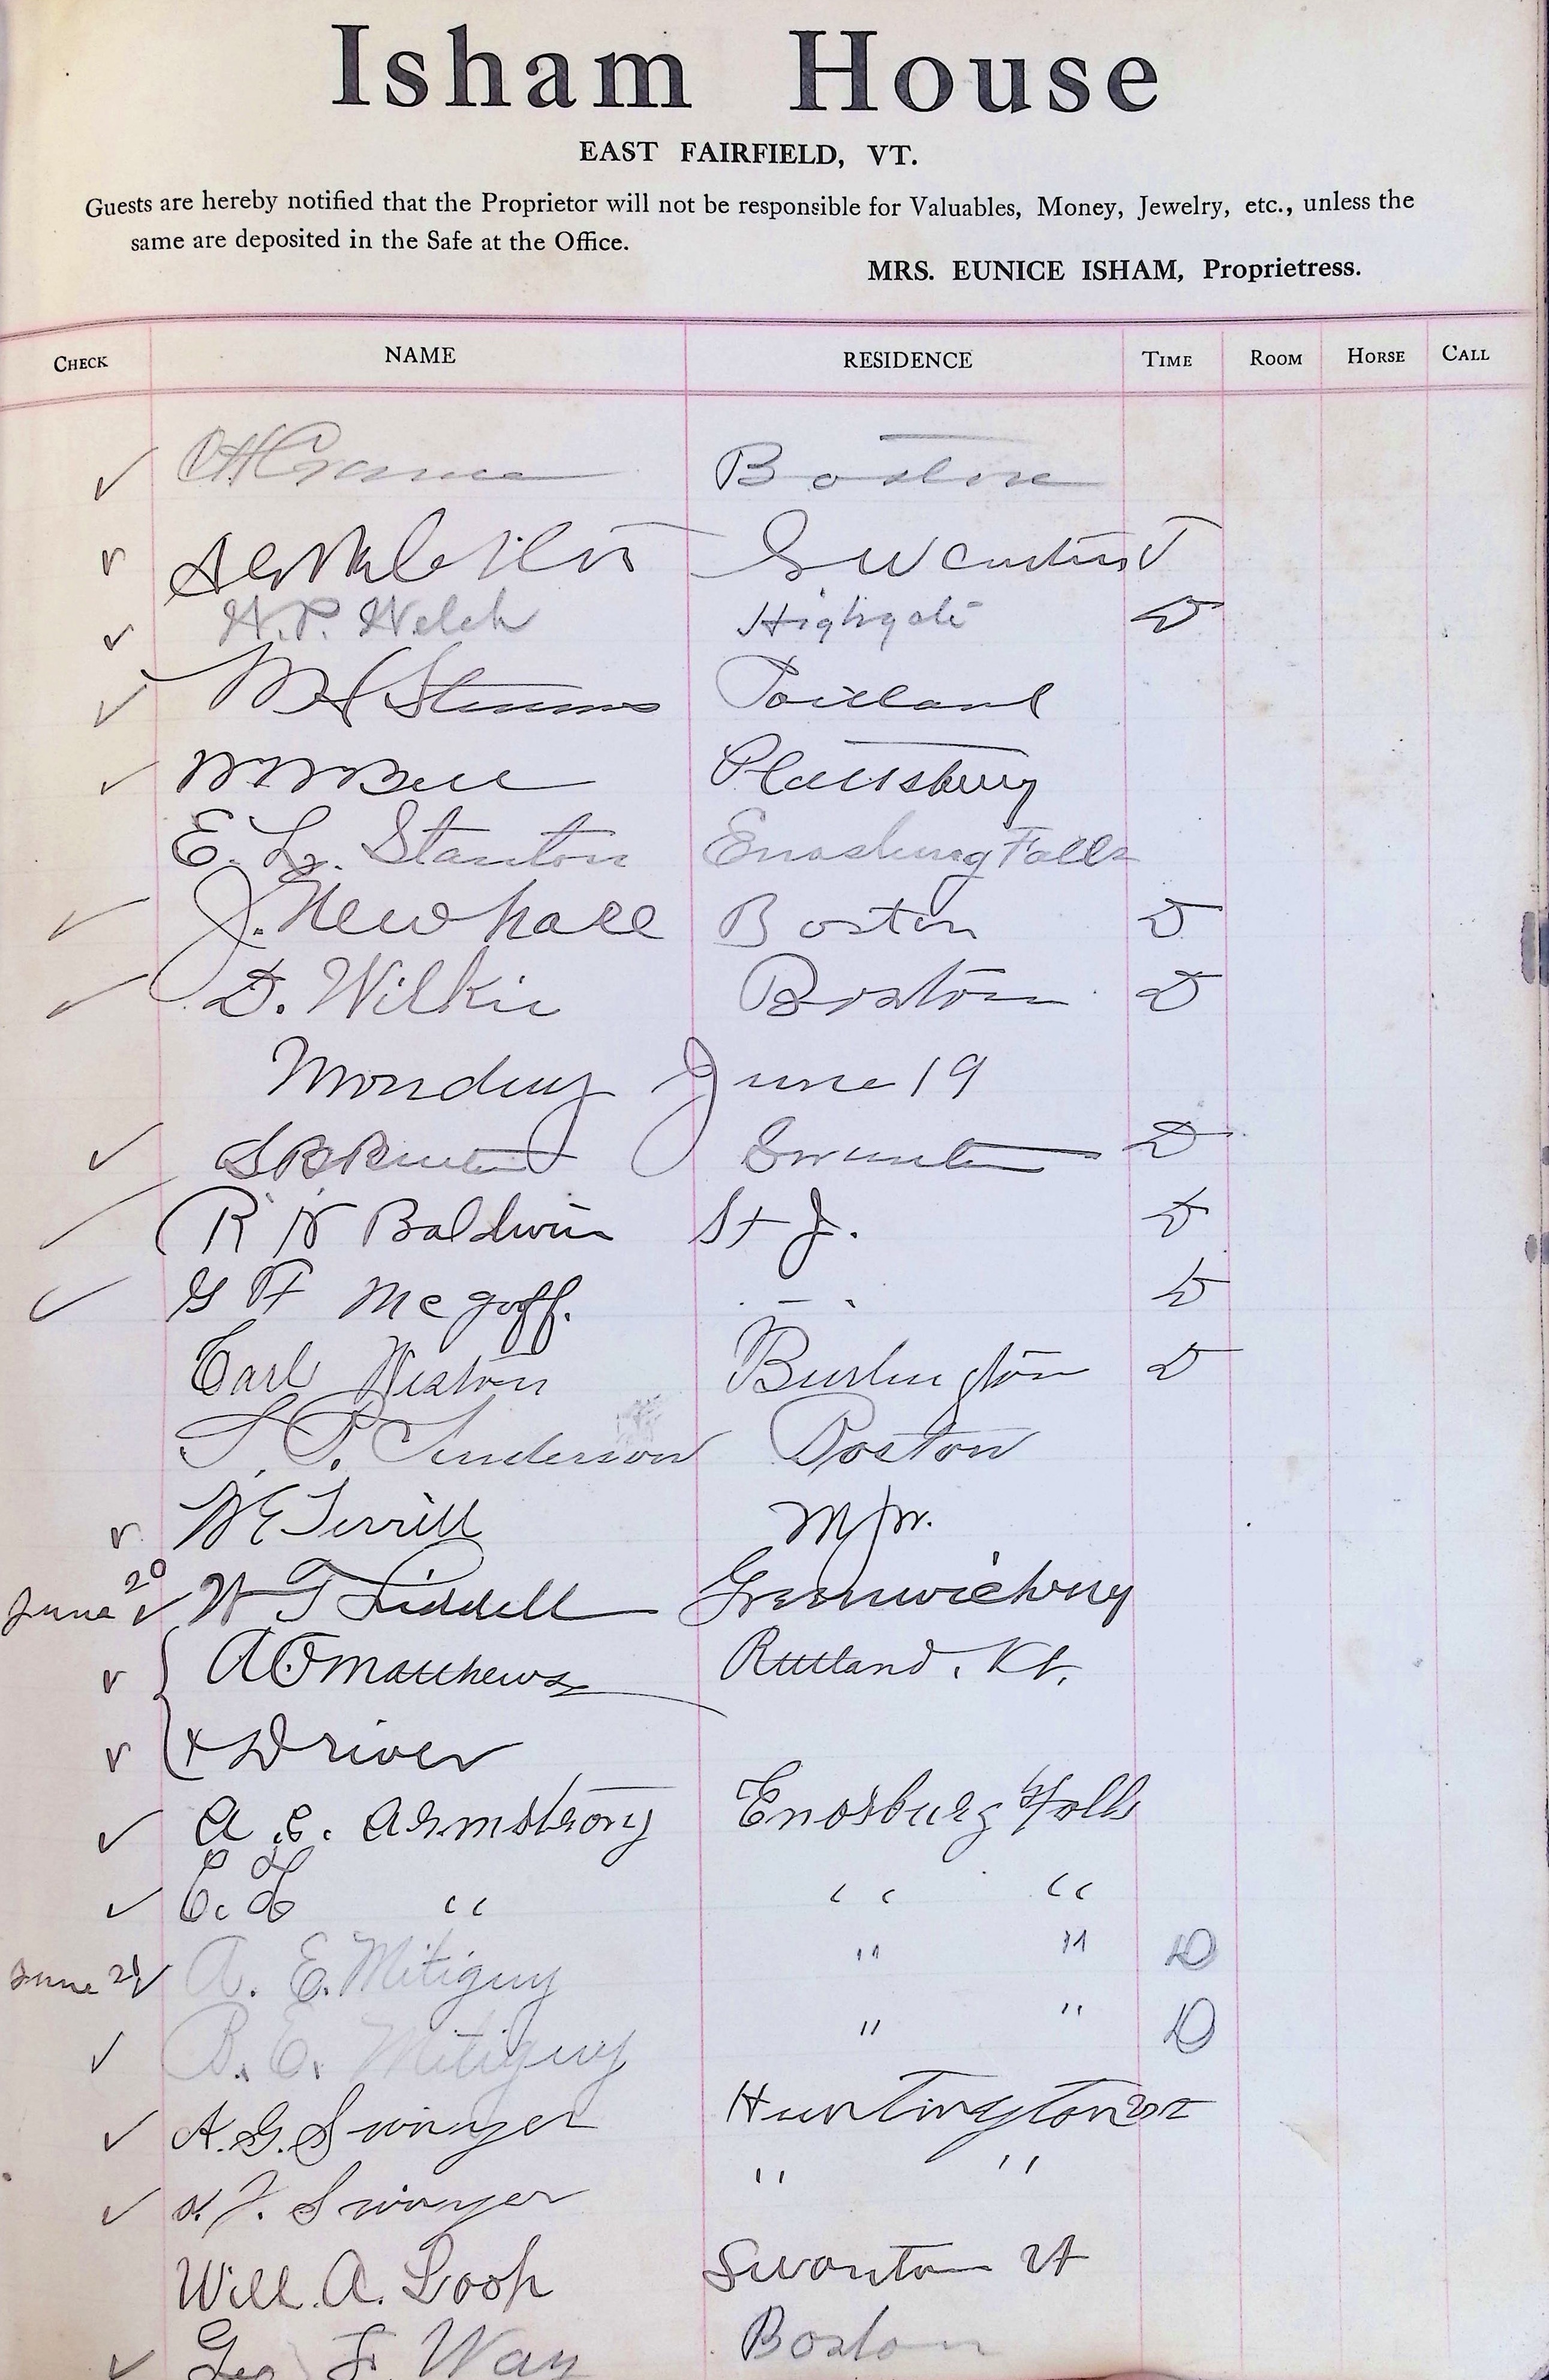 Isham House
EAST FAIRFIELD, VT.
Guests are hereby notified that the Proprietor will not be responsible for Valuables, Money, Jewelry, etc., unless the
same are deposited in the Safe at the Office.
MRS. EUNICE ISHAM, Proprietress.
CHECK NAME RESIDENCE TIME ROOM HORSE CALL
Boston
W. P. Welch Highgate D
Portland
Plattsburg
E. L. Stanton Enosburg Falls
J. Newhall Boston D
D. Wilkie Boston D
Monday June 19
Swanton D
R N Baldwin St J. D
G F Mc goff. D
Earl Weston Burlington D
Boston
W E Terrill
June 20 W T Liddell Greenwich ny
A O Matthews Rutland, Vt.
+ Driver
A. E. Armstrong Enosburg Falls
" " "
June 21 A. E. Mitiguy " " D
B. E. Mitiguy " " D
A. G. Swinyer Huntington Vt
Swinyer " "
Will. A. Loop Swanton Vt
Geo F. Way Boston